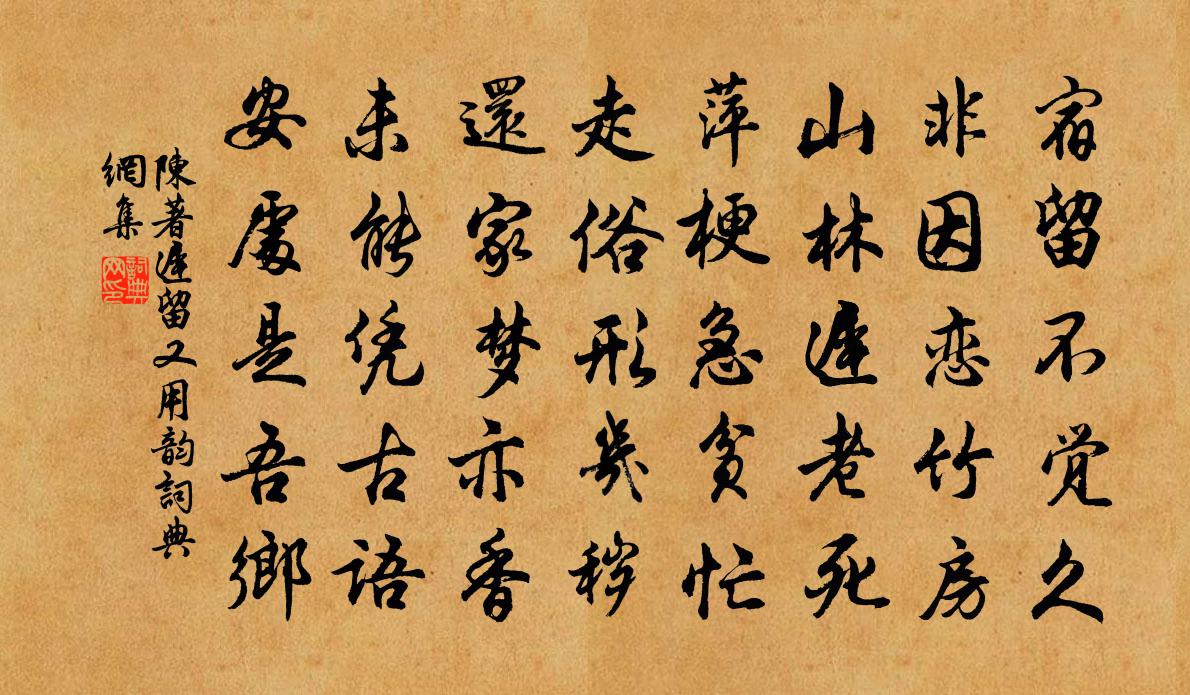 宿留不觉久
非因恋竹房
山林遲老死
萍梗急贫忙
走俗形幾秽
還家梦亦香
未能凭古語
安處是吾鄉
陳著遲留又用韵詞典
網集
詞典
网印